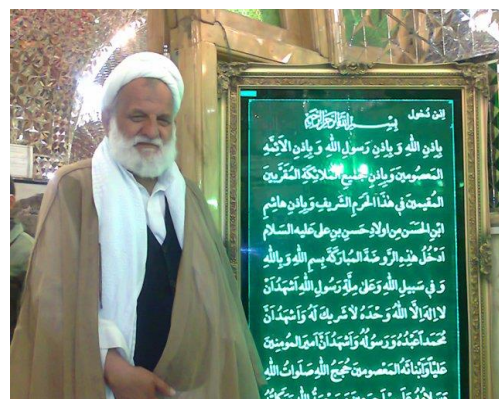 اِذن دُخول
بِسْمِ اللهِ الرَّحْمنِ الرَّحيمِ
بِاِذنِ اللّٰهِ وَ بِاِذنِ رَسولِ اللّٰهِ وَ بِاِذنِ الاَئِمَّةِ
المَعصومينَ وَ بِاِذنِ جَميعِ المَلائِكَةِ المُقَرَّبينَ
المُقيمينَ في هٰذَا الحَرَمِ الشَّريفِ وَ بِاِذنِ هاشِمِ
ابْنِ الحَسَنِ مِن اَولادِ حَسَنِ بنِ عَلي عَلَيهِ السَّلام
اَدخُلُ هٰذِهِ الرَّوضَةَ المُبارَكَةَ بِسمِ اللّٰهِ وَ بِاللّٰهِ
وَ في سَبيلِ اللّٰهِ وَ عَلىٰ مِلَّةِ رَسولِ اللّٰهِ اَشهَدُ اَنْ
لا اِلٰهَ اِلَّا اللّٰهُ وَحدَهُ لا شَريكَ لَهُ وَ اَشهَدُ اَنَّ
مُحَمَّداً عَبدُهُ وَ رَسولُهُ وَ اَشهَدُ اَنَّ اَميرَ المُؤمِنينَ
عَلِيّاً وَ اَبنائَهُ المَعصومينَ حُجَجُ اللّٰهِ صَلَواتُ اللّٰهِ